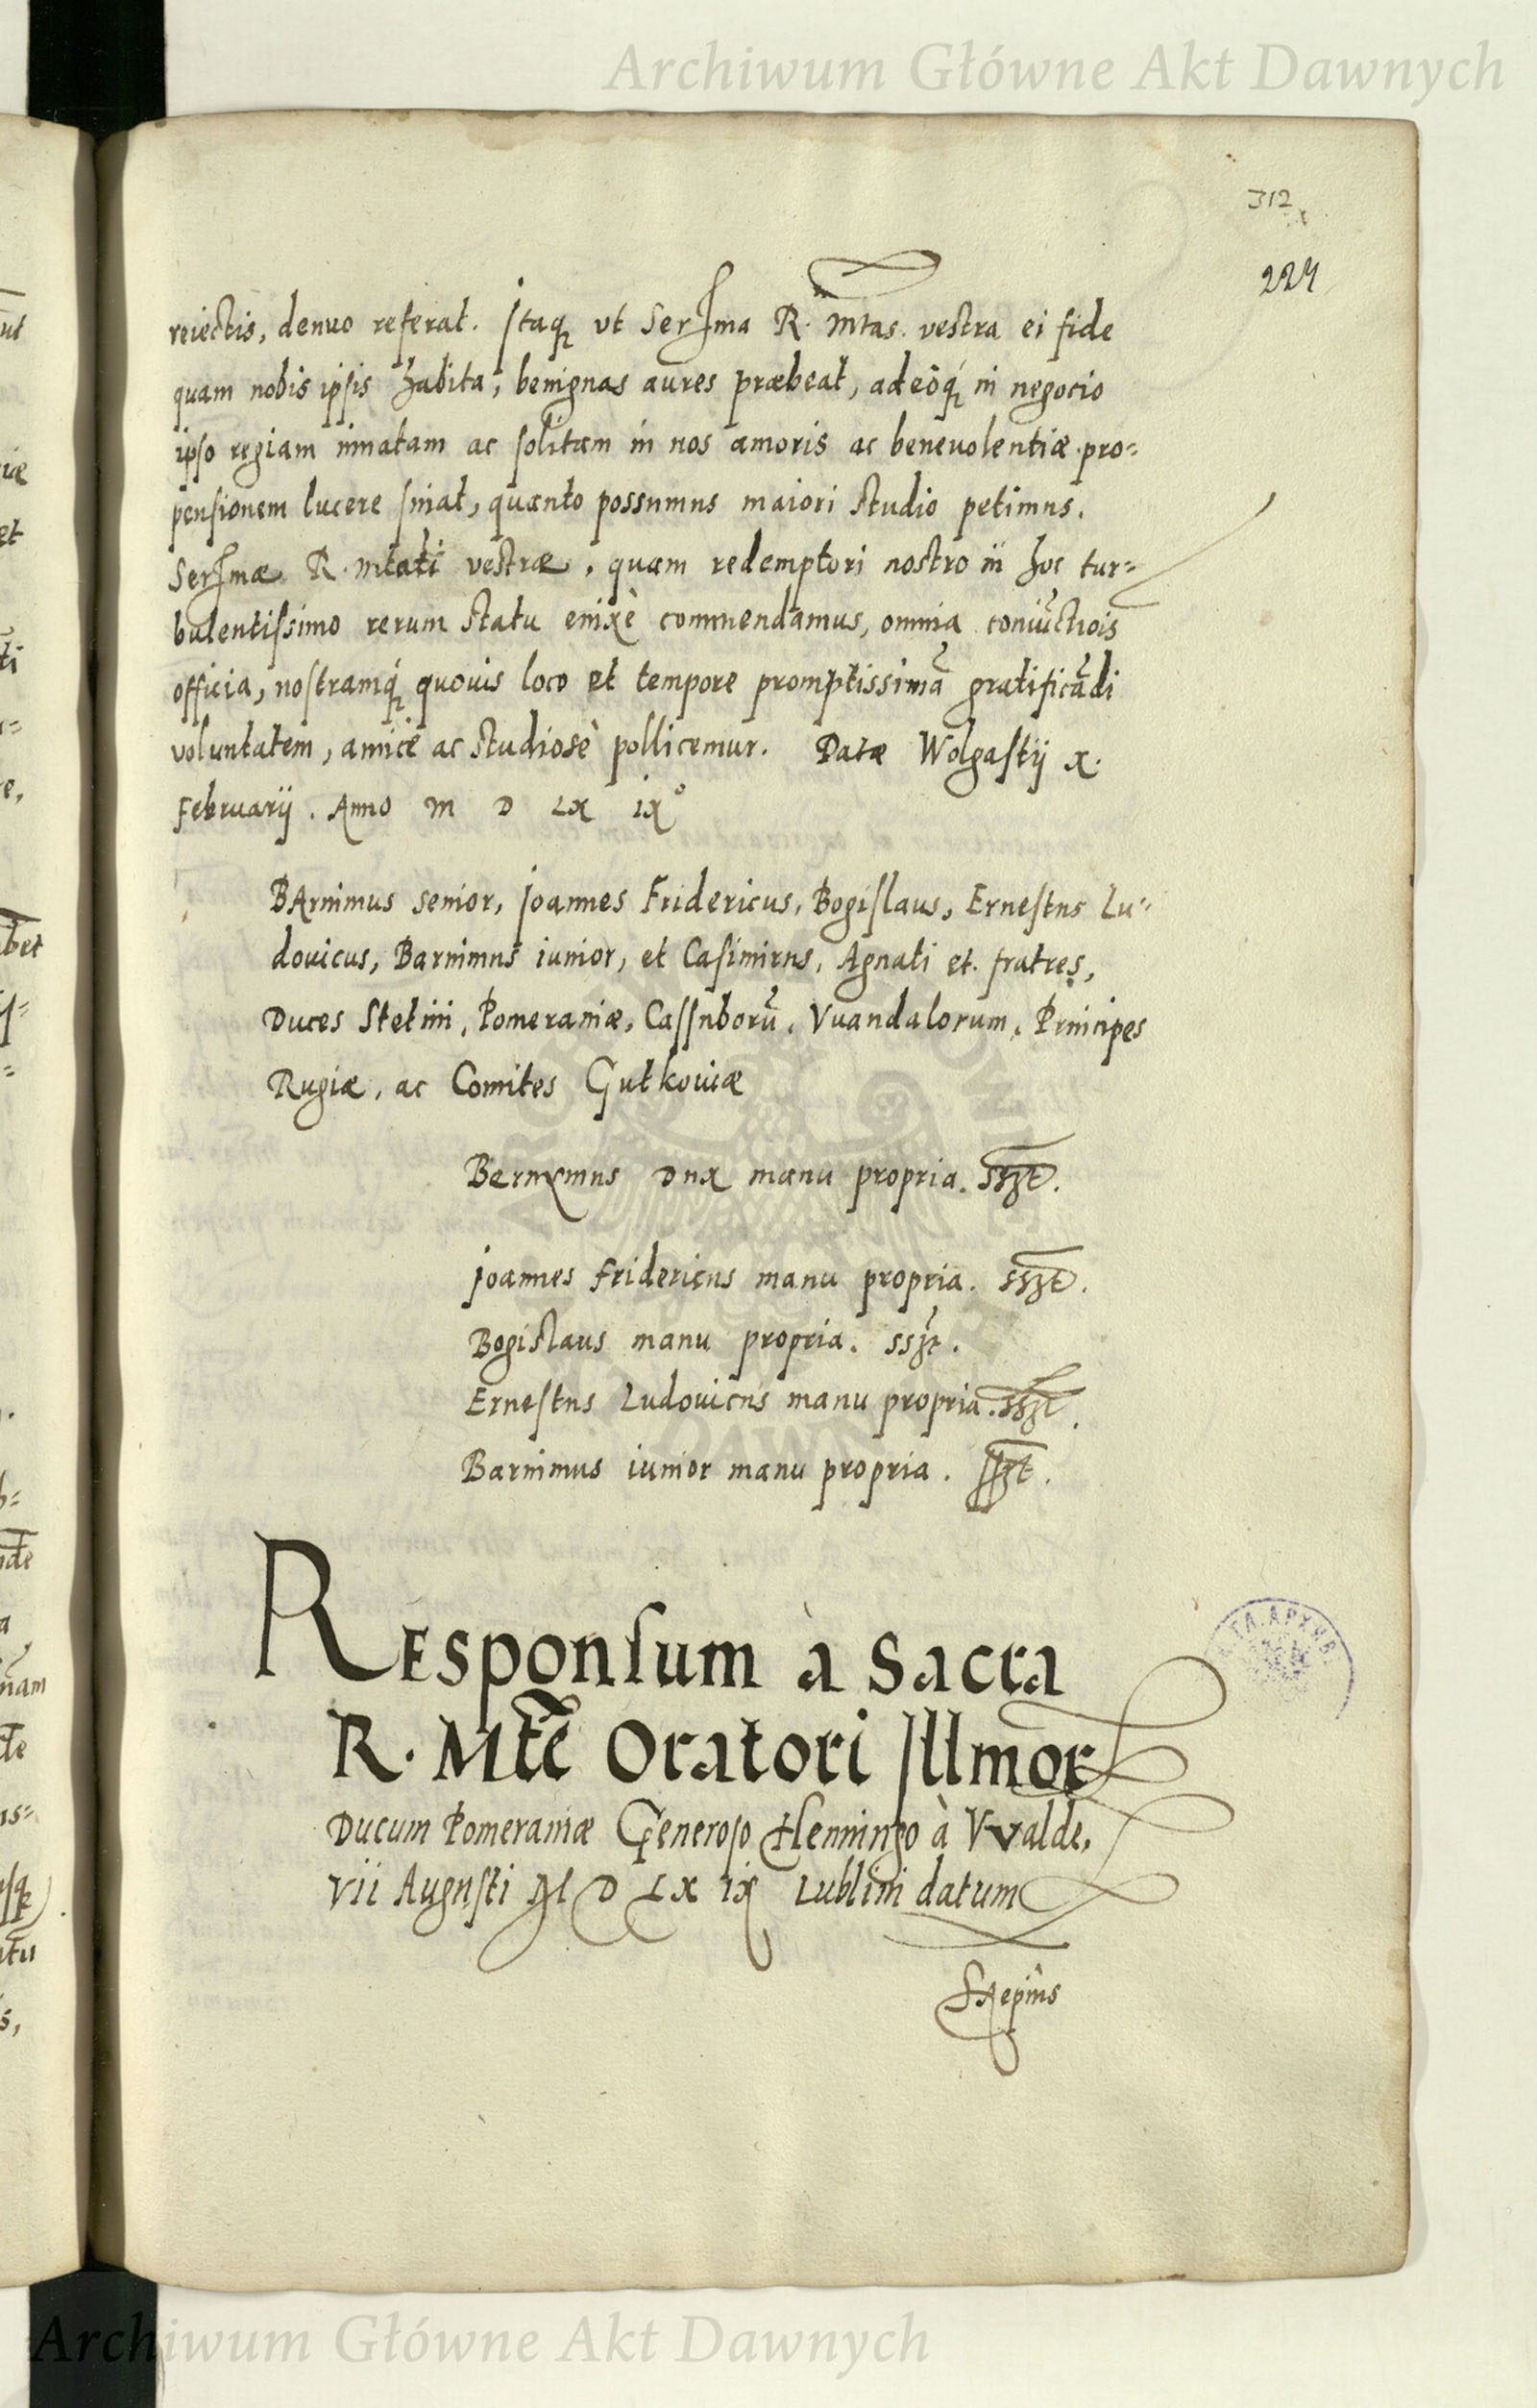 Archiwum Główne Akt Dawnych
312
224
reiectis, denuo referat. Itaq́ꝫ vt Serma R. Mtas. vestra ei fide
quam nobis ipsis habita, benignas aures præbeat, adeòq́ꝫ in negocio
ipso regiam innatam ac solitam in nos amoris ac beneuolentiæ pro=
pensionem lucere sinat, quanto possumus maiori studio petimus.
Sermæ R. Mtati vestræ, quam redemptori nostro in hoc tur=
bulentissimo rerum statu enixè commendamus, omnia coniūctiois
officia, nostramq́ꝫ quouis loco et tempore promptissimā gratificādi
voluntatem, amicè ac studiosè pollicemur. Datæ Wolgastij x.
Februarij. Anno M D LX IXo
BArnimus senior, Joannes Fridericus, Bogislaus, Ernestus Lu=
douicus, Barnimus iunior, et Casimirus, Agnati et fratres,
Duces Stetini, Pomeraniæ, Cassuborū, Vuandalorum, Principes
Rugiæ, ac Comites Gutkouiæ
Bernymus Dux manu propria. sszt.
Joannes Fridericus manu propria. sszt.
Bogislaus manu propria. sszt.
Ernestus Ludouicus manu propria. sszt.
Barnimus iunior manu propria. sszt.
REsponsum à Sacra
R. Mtē Oratori Illmor
Ducum Pomeraniæ Generoso Henningo à Vvalde,
VII Augusti M D LX IX Lublini datum
Archiwum Główne Akt Dawnych